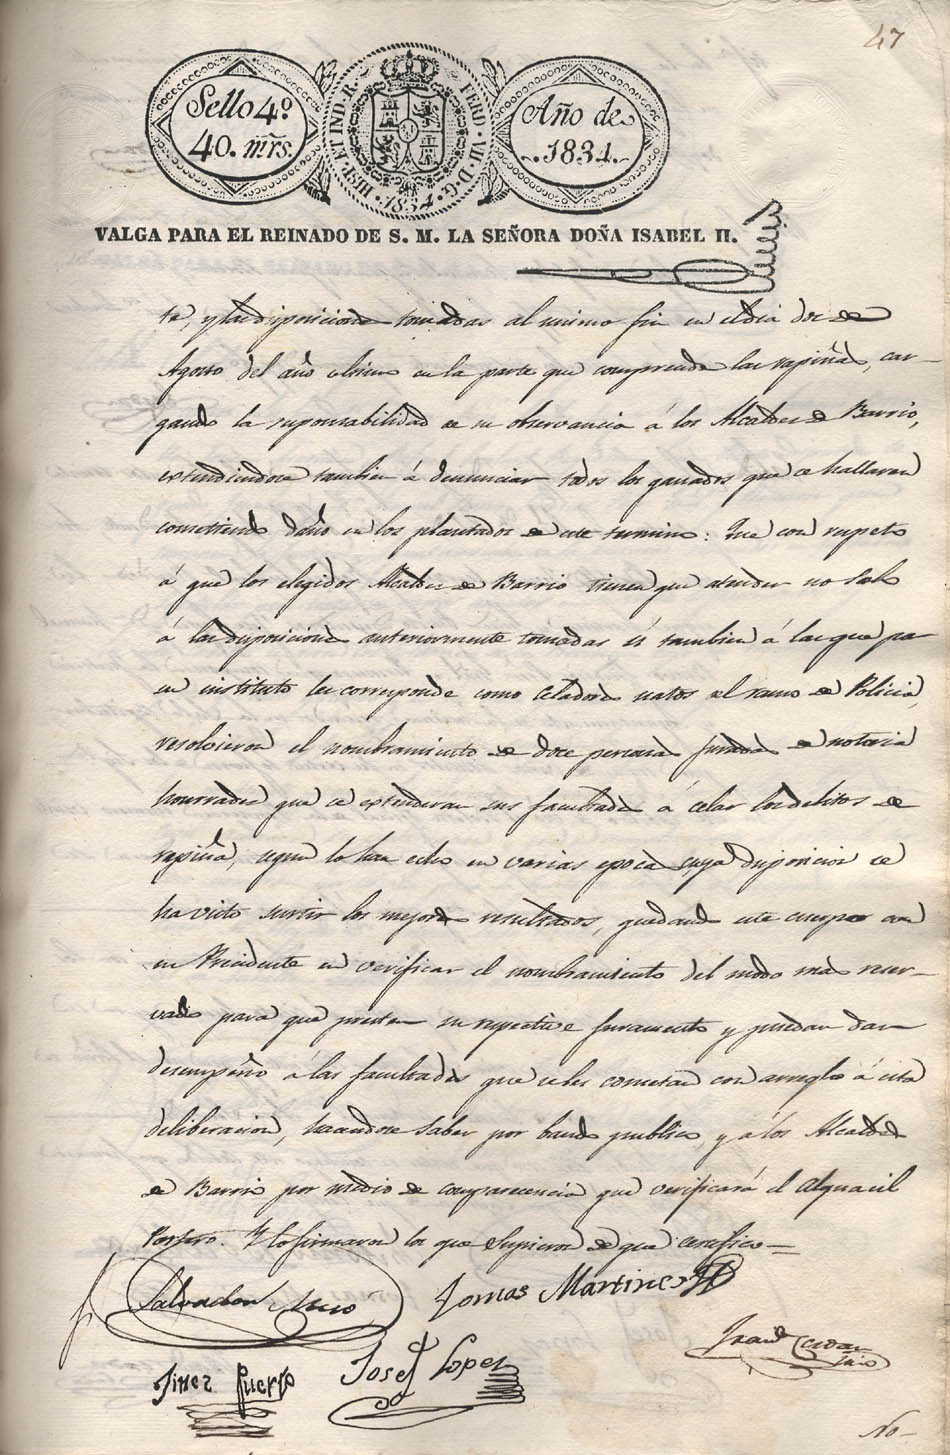 47
Sello 4º
40. mrs.
HISP. ET IND. R.
FERD. VII. D. G.
1834
Año de
1834.
VALGA PARA EL REINADO DE S. M. LA SEÑORA DOÑA ISABEL II.
ta, y las disposiciones tomadas al mismo fin en el dia doce de
Agosto del año ultimo en la parte que comprende las rapiñas, car-
gando la responsabilidad de su observancia á los Alcaldes de Barrio,
estendiendose tambien á denunciar todos los ganados que se hallaren
cometiendo daño en los plantados de este termino: Que con respeto
á que los elegidos Alcaldes de Barrio tienen que atender no solo
á las disposiciones anteriormente tomadas si tambien á las que por
su instituto les corresponde como celadores natos del ramo de Policia,
resolvieron el nombramiento de doce personas juradas de notoria
honrradez que se estenderan sus facultades á celar los delitos de
rapiña, segun lo han echo en varias epocas cuya disposicion se
ha visto surtir los mejores resultados, quedando este cuerpo con
su Presidente en verificar el nombramiento del modo mas reser-
vado para que presten su respectivo juramento y puedan dar
desempeño á las facultades que se les cometan con arreglo á esta
deliberacion, haciendose saber por bando publico, y á los Alcaldes
de Barrio por medio de comparecencia que verificará el Alguacil
Portero. Y lo firmaron los que supieron de que certifico=
Salvador
Tomas Martinez
Jinez Puerto
Josef Lopez
No-